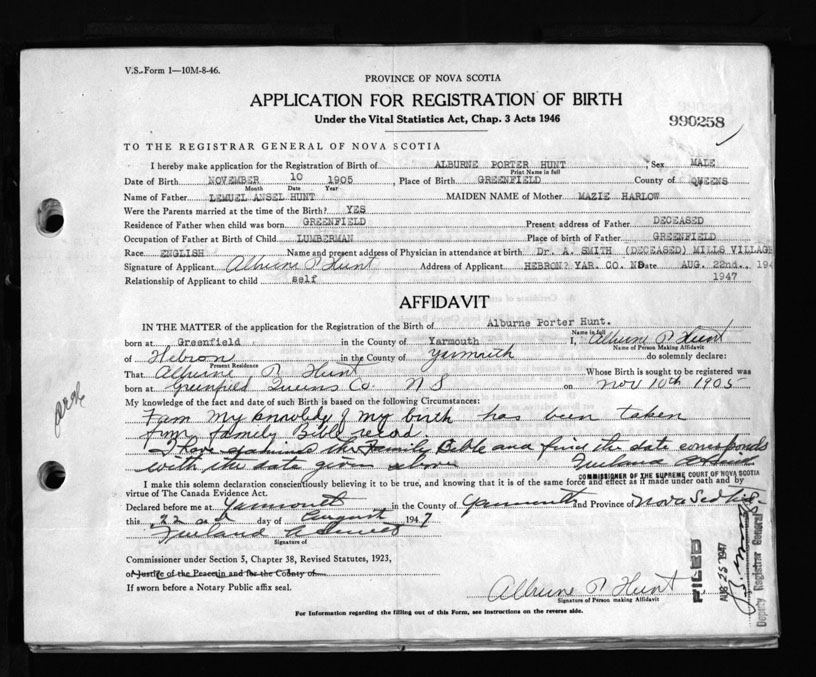 V.S. Form 1—10M-8-46.
PROVINCE OF NOVA SCOTIA
APPLICATION FOR REGISTRATION OF BIRTH
Under the Vital Statistics Act, Chap. 3 Acts 1946
990258
TO THE REGISTRAR GENERAL OF NOVA SCOTIA
I hereby make application for the Registration of Birth of ALBURNE PORTER HUNT, Sex MALE
Print Name in full
Date of Birth NOVEMBER 10 1905, Place of Birth GREENFIELD County of QUEENS
Month Date Year
Name of Father LEMUEL ANSEL HUNT MAIDEN NAME of Mother MAZIE HARLOW
Were the Parents married at the time of the Birth? YES
Residence of Father when child was born GREENFIELD Present address of Father DECEASED
Occupation of Father at Birth of Child LUMBERMAN Place of birth of Father GREENFIELD
Race ENGLISH Name and present address of Physician in attendance at birth Dr. A. SMITH (DECEASED) MILLS VILLAGE
Signature of Applicant Alburne P Hunt Address of Applicant HEBRON? YAR. CO. NS Date AUG. 22nd., 194
Relationship of Applicant to child self 1947
AFFIDAVIT
IN THE MATTER of the application for the Registration of the Birth of Alburne Porter Hunt.
Name in full
born at Greenfield in the County of Yarmouth I, Alburne P Hunt
Name of Person Making Affidavit
of Hebron in the County of Yarmouth do solemnly declare:
Present Residence
That Alburne P. Hunt Whose Birth is sought to be registered was
born at Greenfield Queens Co. N S on Nov 10th 1905
My knowledge of the fact and date of such Birth is based on the following Circumstances:
I am My knowledg of my birth has been taken
from family Bible record.
I have examined the Family Bible and find the date corresponds
with the date given above
COMMISSIONER OF THE SUPREME COURT OF NOVA SCOTIA
I make this solemn declaration conscientiously believing it to be true, and knowing that it is of the same force and effect as if made under oath and by
virtue of The Canada Evidence Act.
Declared before me at Yarmouth in the County of Yarmouth and Province of Nova Scotia
this 22nd day of August 1947
Signature of
Commissioner under Section 5, Chapter 38, Revised Statutes, 1923,
or Justice of the Peace in and for the County of
If sworn before a Notary Public affix seal.
Alburne P Hunt
Signature of Person making Affidavit
For Information regarding the filling out of this Form, see instructions on the reverse side.
FILED
AUG 25 1947
Deputy Registrar General